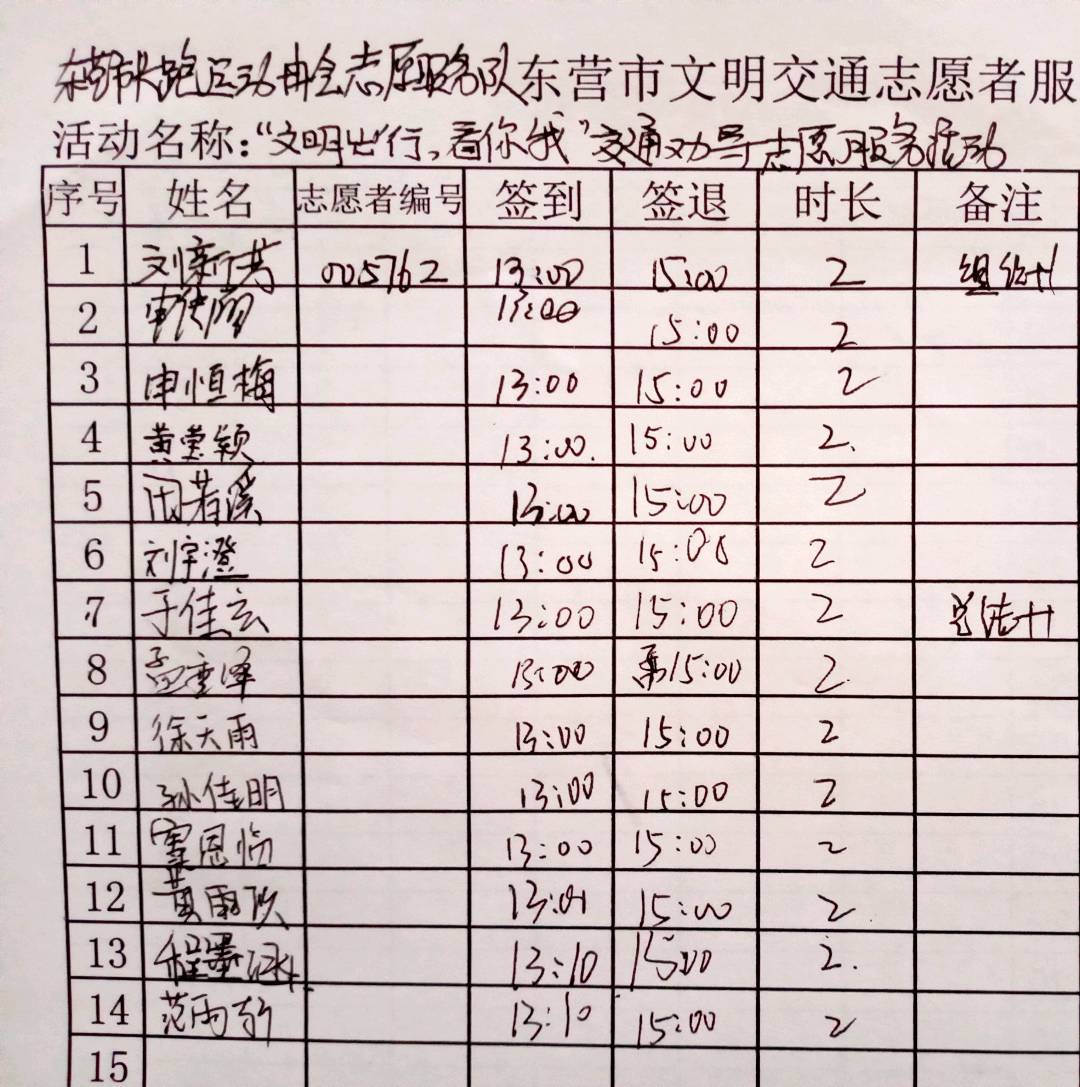 东营市长跑运动协会志愿服务队东营市文明交通志愿者服
活动名称:“文明出行,看你我”交通劝导志愿服务活动
序号 姓名 志愿者编号 签到 签退 时长 备注
1 刘新芸 005762 13:00 15:00 2
2 13:00 15:00 2
3 申恒梅 13:00 15:00 2
4 黄莹颖 13:00. 15:00 2.
5 闫若溪 13:00 15:00 2
6 刘宇澄 13:00 15:00 2
7 于佳玄 13:00 15:00 2 总结+1
8 孟重泽 13:00 15:00 2.
9 徐天雨 13:00 15:00 2
10 孙佳明 13:00 15:00 2
11 恩临 13:00 15:00 2
12 黄雨欣 13:01 15:00 2
13 程 13:10 15:00 2.
14 范雨轩 13:10 15:00 2
15